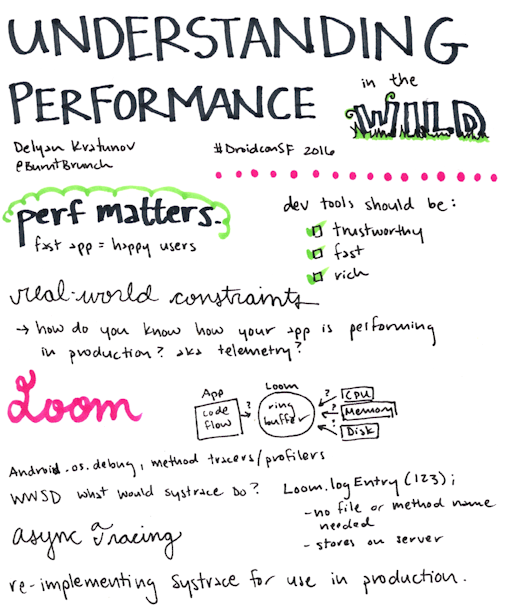 UNDERSTANDING
PERFORMANCE
in the
WILD
Delyan Kratunov
@BurntBrunch
#DroidconSF 2016
perf matters.
fast app = happy users
dev tools should be:
trustworthy
fast
rich
real-world constraints
→ how do you know how your app is performing
in production? aka telemetry?
Loom
App
code
flow
?
Loom
ring
buffer
?
CPU
?
Memory
?
Disk
Android.os.debug, method tracers/profilers
WWSD what would systrace do?
Loom.logEntry(123);
- no file or method name
needed
- stores on server
async Tracing
re-implementing systrace for use in production.